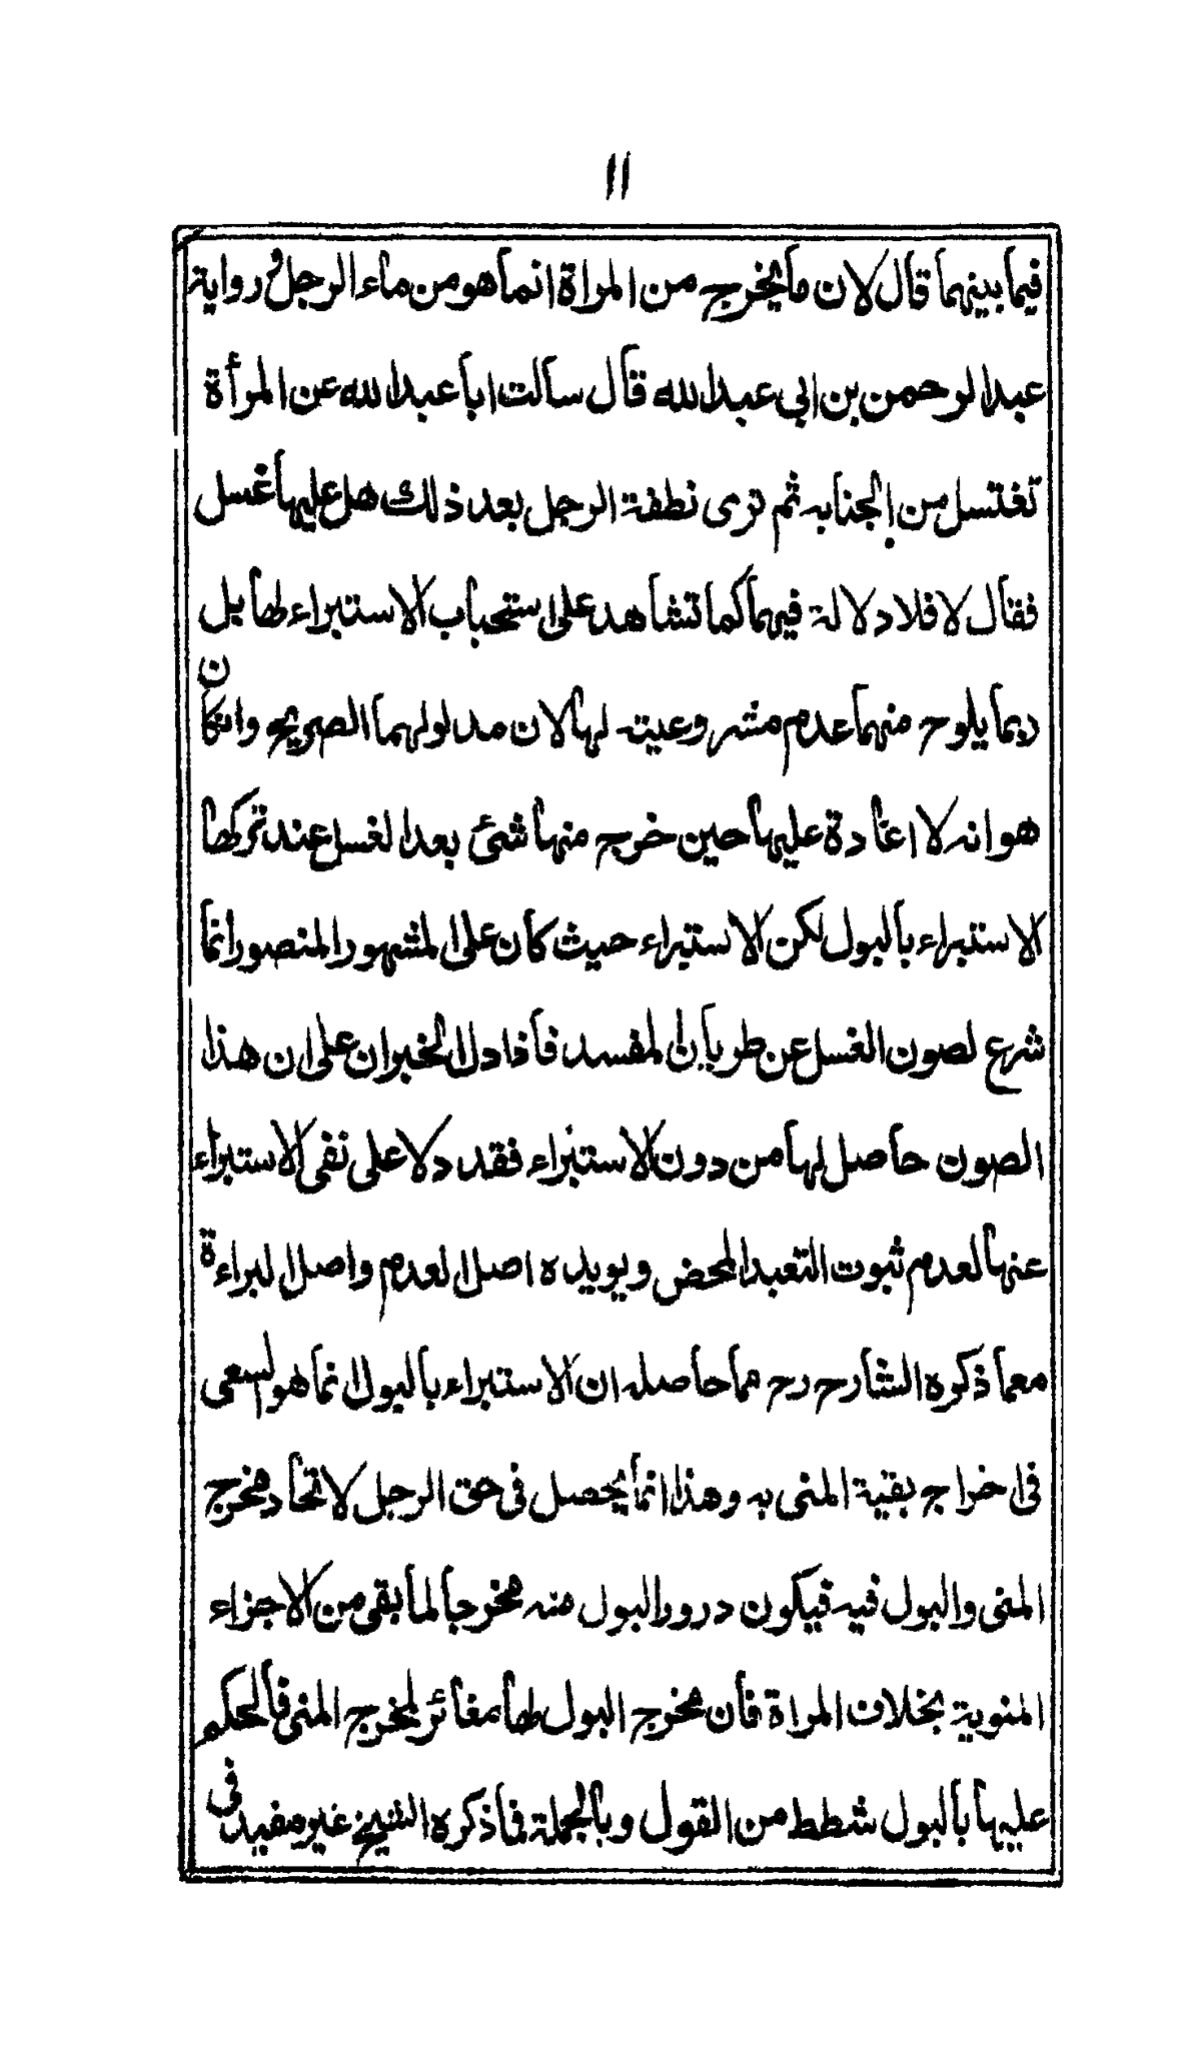 ١١
فيما بينهما قال لان ما يخرج من المراة انما هو من ماء الرجل و رواية
عبد الرحمن بن ابي عبد الله قال سالت ابا عبد الله عن المرأة
تغتسل من الجنابه ثم ترى نطفة الرجل بعد ذلك هل عليها غسل
فقال لا فلا دلالة فيهما كما تشاهد على استحباب الاستبراء لها بل
ربما يلوح منهما عدم مشروعيته لها لان مدلولهما الصريح وانكان
هو انه لا اعادة عليها حين خرج منها شئ بعد الغسل عند تركها
الاستبراء بالبول لكن الاستبراء حيث كان على المشهور المنصور انما
شرع لصون الغسل عن طريان المفسد فاذا دل الخبران على ان هذا
الصون حاصل لها من دون الاستبراء فقد دلا على نفى الاستبراء
عنها لعدم ثبوت التعبد المحض ويويده اصل العدم واصل البراءة
معما ذكره الشارح رح مما حاصله ان الاستبراء بالبول انما هو لسعى
فى اخراج بقية المنى به وهذا انما يحصل فى حق الرجل لاتحاد مخرج
المنى والبول فيه فيكون درور البول منه مخرجا لما بقى من الاجزاء
المنوية بخلاف المراة فان مخرج البول لها مغائر لمخرج المنى فالحكم
عليها بالبول شطط من القول وبالجملة فما ذكره الشيخ غير مفيد فى